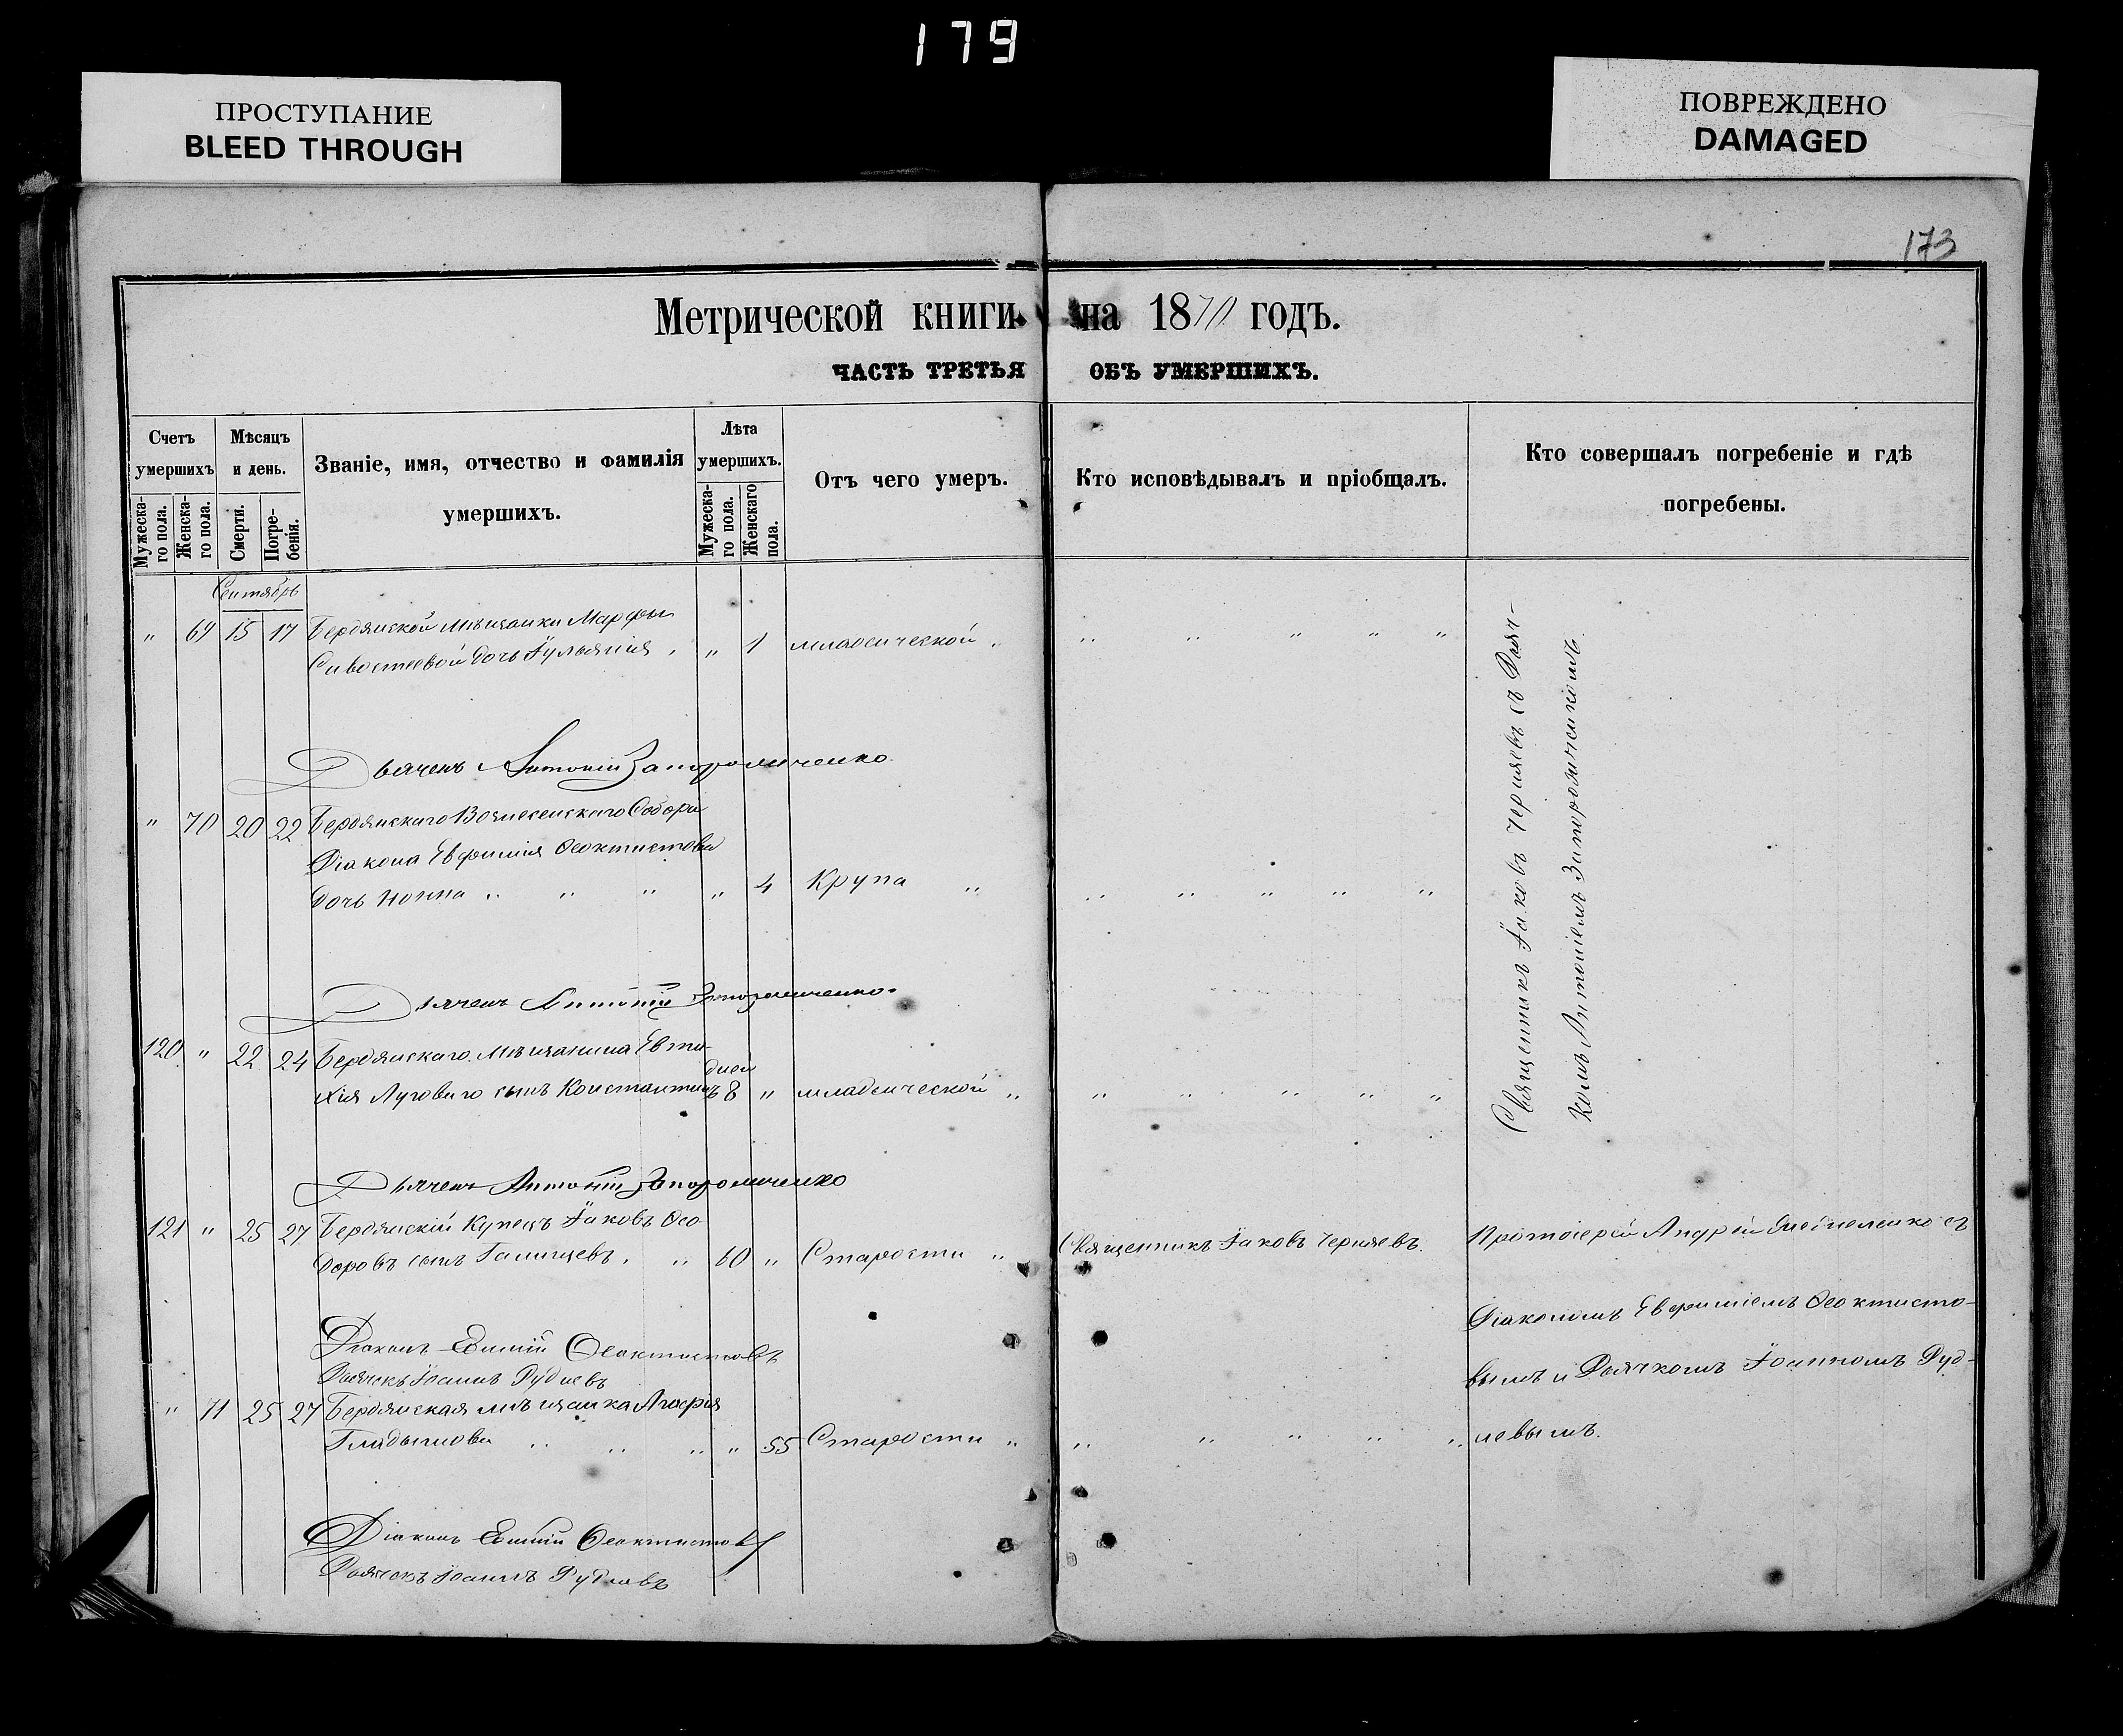 179
ПРОСТУПАНИЕ
BLEED THROUGH
ПОВРЕЖДЕНО
DAMAGED
173
Метрической книги на 1870 годъ.
ЧАСТЬ ТРЕТЬЯ ОБЪ УМЕРШИХЪ.
Счетъ умершихъ
Мужеска-го пола.
Женска-го пола.
Мѣсяцъ и день.
Смерти.
Погре-бенія.
Званіе, имя, отчество и фамилія умершихъ.
Лѣта умершихъ.
Мужеска-го пола.
Женскаго пола.
Отъ чего умеръ.
Кто исповѣдывалъ и пріобщалъ.
Кто совершалъ погребеніе и гдѣ погребены.
Сентябрь
" 69 15 17 Бердянской мѣщанки Марфы
дочь Іульянія, " 1 младенческой "
Дьячекъ Антоній Запорожченко
" 70 20 22 Бердянскаго Вознесенскаго Собора
Діакона Евфимія Ѳеоктистова
дочь Нонна " " " " 4 Крупа "
Дьячекъ Антоній Запорожченко.
120 " 22 24 Бердянскаго мѣщанина Евти-
дней
хія Луговаго сынъ Константинъ 8 " младенческой "
Дьячекъ Антоній Запорожченко
121 " 25 27 Бердянскій Купецъ Іаковъ Ѳео-
доровъ сынъ Галищевъ, " 60 " Старости "
Священникъ Іаковъ Черняевъ.
Діаконъ Ефимій Ѳеоктистовъ
Дьячекъ Іоаннъ Рудневъ
" 71 25 27 Бердянская мѣщанка Агафія
Гладышова " " " " 55 Старости "
Діаконъ Ефимій Ѳеоктистовъ
Дьячекъ Іоаннъ Рудневъ
Священникъ Іаковъ Черняевъ съ Дьяч-
комъ Антоніемъ Запорожченкомъ.
Протоіерей Андрей съ
Діакономъ Евфиміемъ Ѳеоктисто-
вымъ и Дьячкомъ Іоанномъ Руд-
невымъ.